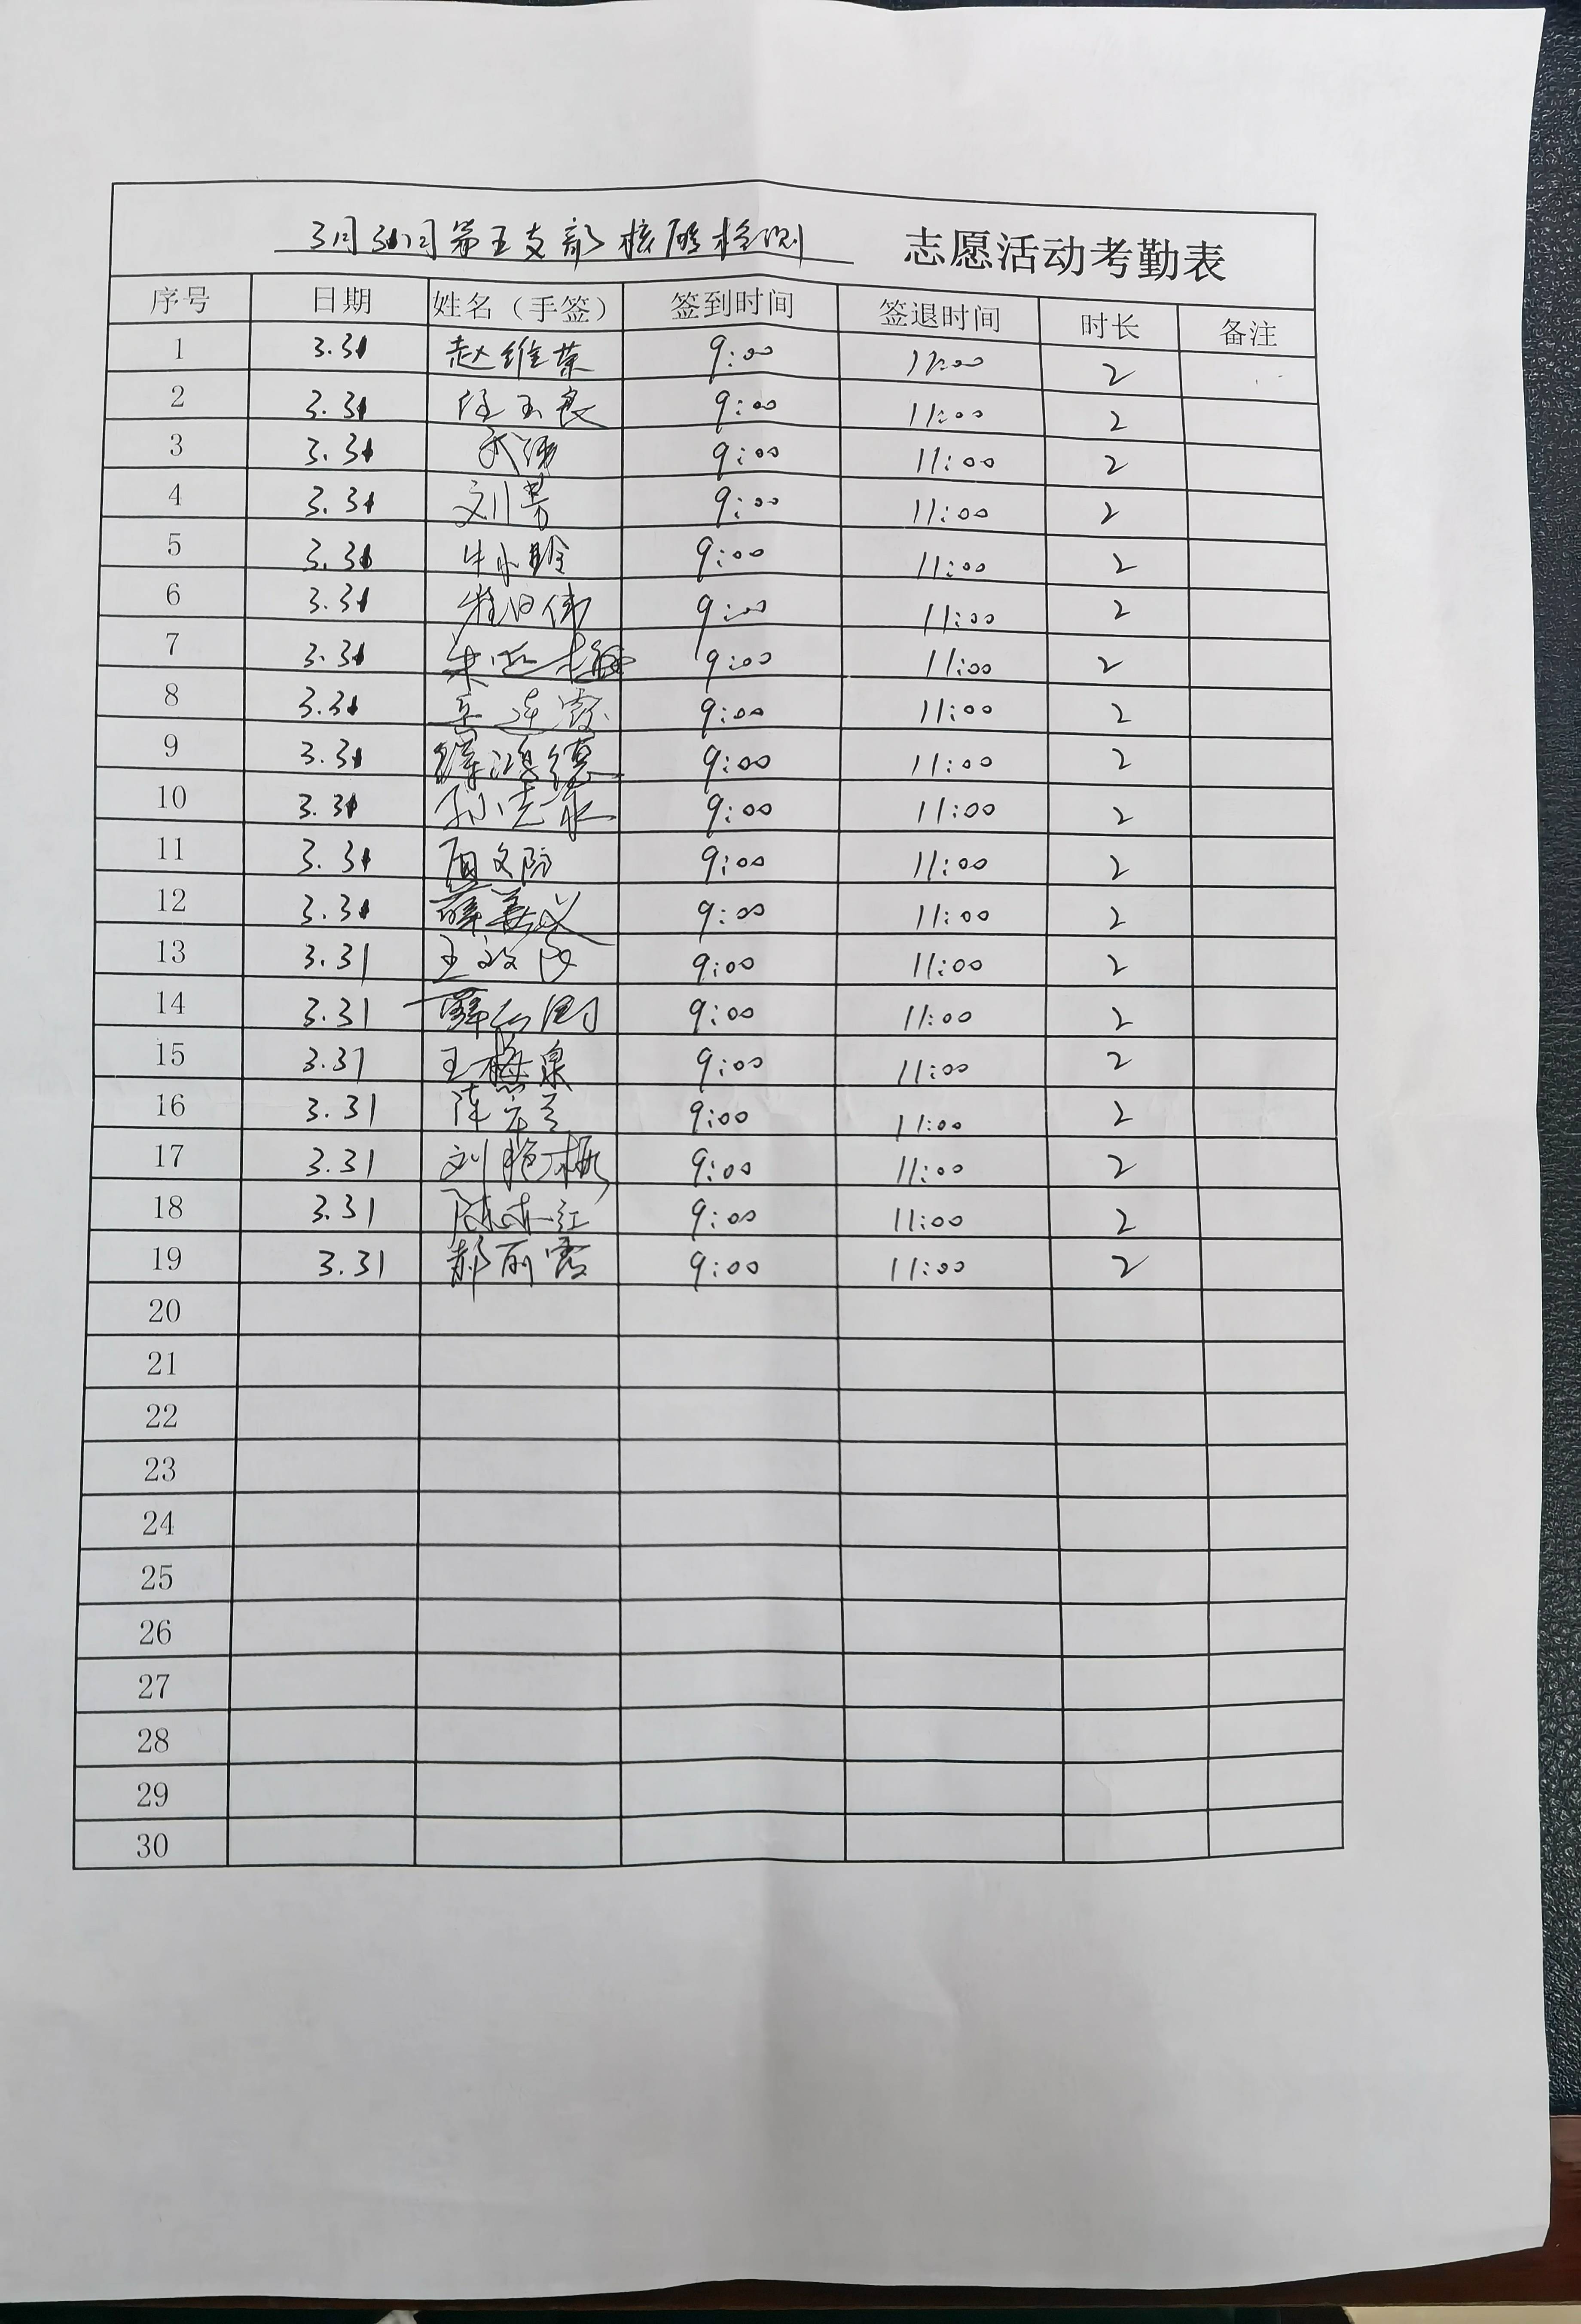 3月31日第五支部核酸检测 志愿活动考勤表
序号 日期 姓名（手签） 签到时间 签退时间 时长 备注
1 3.31 赵维荣 9:00 11:00 2
2 3.31 任玉良 9:00 11:00 2
3 3.31 9:00 11:00 2
4 3.31 刘芳 9:00 11:00 2
5 3.31 牛小玲 9:00 11:00 2
6 3.31 9:00 11:00 2
7 3.31 9:00 11:00 2
8 3.31 9:00 11:00 2
9 3.31 薛鸿德 9:00 11:00 2
10 3.31 9:00 11:00 2
11 3.31 9:00 11:00 2
12 3.31 薛美义 9:00 11:00 2
13 3.31 王政民 9:00 11:00 2
14 3.31 9:00 11:00 2
15 3.31 王梅泉 9:00 11:00 2
16 3.31 9:00 11:00 2
17 3.31 刘艳梅 9:00 11:00 2
18 3.31 9:00 11:00 2
19 3.31 郝丽霞 9:00 11:00 2
20
21
22
23
24
25
26
27
28
29
30